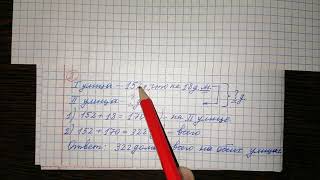 I улица - 152 на 18 д м
II улица - ?д.
?д.
1) 152 + 18 = 170 на II улице
2) 152 + 170 = 322 - всего
Ответ: 322 дома всего на обеих улицах